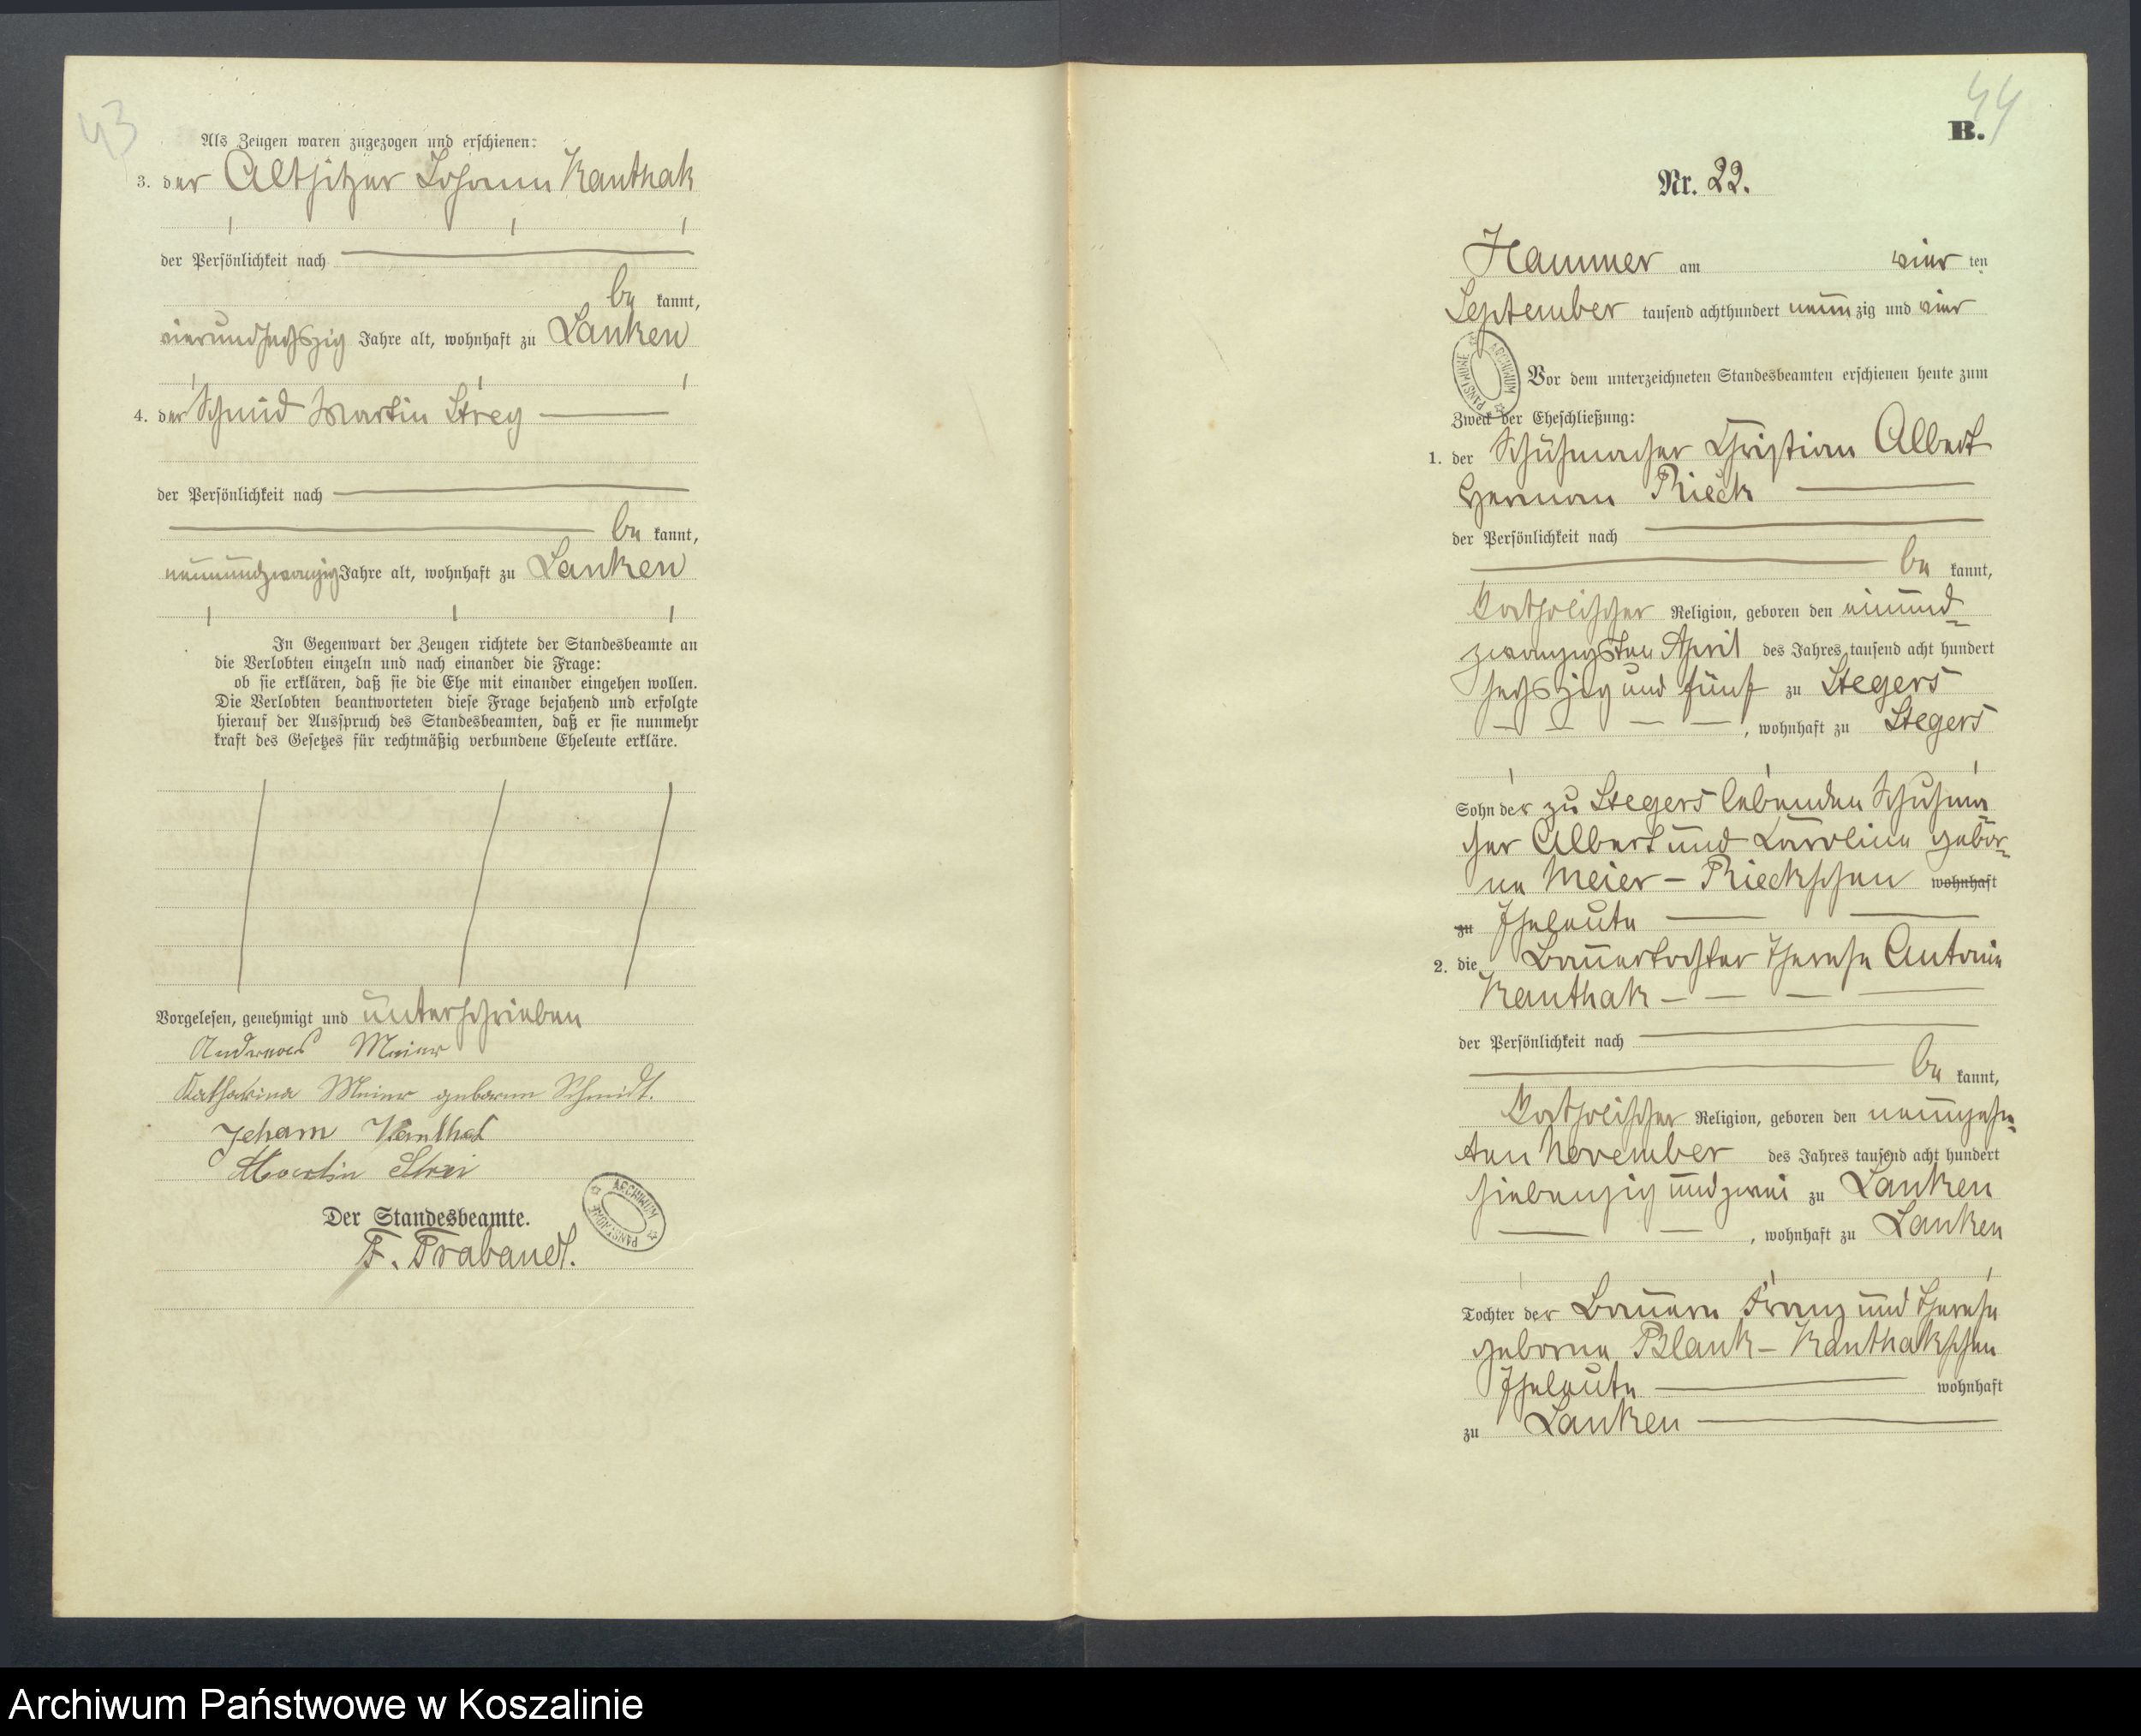 43
Als Zeugen waren zugezogen und erschienen:
3. der Altsitzer Johann Kanthak
der Persönlichkeit nach
be kannt,
vierundsechszig Jahre alt, wohnhaft zu Lanken
4. der Schmid Martin Strey
der Persönlichkeit nach
be kannt,
neunundzwanzig Jahre alt, wohnhaft zu Lanken
In Gegenwart der Zeugen richtete der Standesbeamte an
die Verlobten einzeln und nach einander die Frage:
ob sie erklären, daß sie die Ehe mit einander eingehen wollen.
Die Verlobten beantworteten diese Frage bejahend und erfolgte
hierauf der Ausspruch des Standesbeamten, daß er sie nunmehr
kraft des Gesetzes für rechtmäßig verbundene Eheleute erkläre.
Vorgelesen, genehmigt und unterschrieben
Andreas Meier
Katharina Meier geboren Schmidt.
Johann Kanthak
Martin Strei
Der Standesbeamte.
F. Brabandt.
ARCHIWUM PAŃSTWOWE
44
B.
Nr. 22.
Hammer am vier ten
September tausend achthundert neun zig und vier
ARCHIWUM PAŃSTWOWE
Vor dem unterzeichneten Standesbeamten erschienen heute zum
Zweck der Eheschließung:
1. der Schuhmacher Christian Albert
Herman Rieck
der Persönlichkeit nach
be kannt,
katholischer Religion, geboren den einund-
zwanzigsten April des Jahres tausend acht hundert
sechszig und fünf zu Stegers
, wohnhaft zu Stegers
Sohn der zu Stegers lebenden Schuhma
cher Albert und Karoline gebor-
ne Meier - Rieckschen wohnhaft
zu Eheleute
2. die Bauertochter Therese Antonie
Kanthak
der Persönlichkeit nach
be kannt,
katholischer Religion, geboren den neunzehn-
ten November des Jahres tausend acht hundert
siebenzig und zwei zu Lanken
, wohnhaft zu Lanken
Tochter der Bauern Franz und Therese
geborne Blank - Kanthakschen
Eheleute wohnhaft
zu Lanken
Archiwum Państwowe w Koszalinie